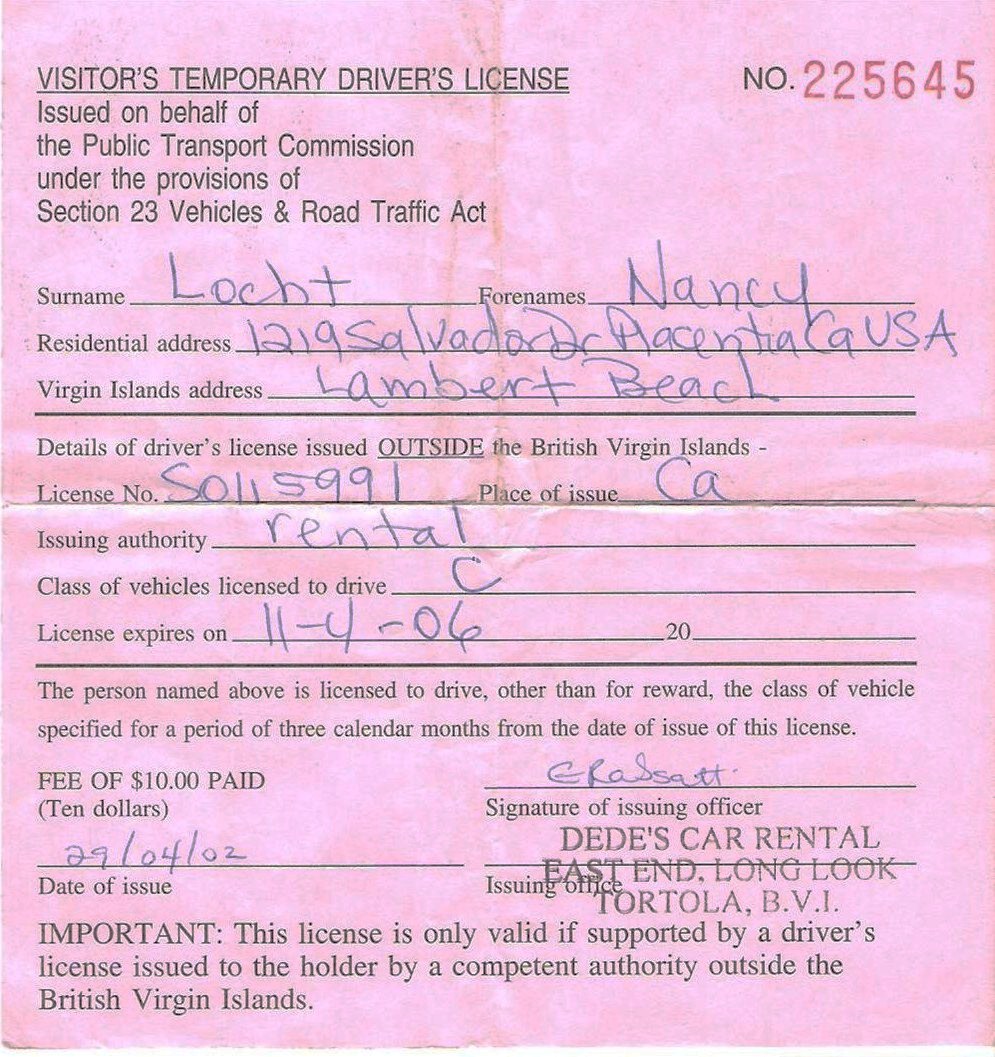 VISITOR'S TEMPORARY DRIVER'S LICENSE NO. 225645
Issued on behalf of
the Public Transport Commission
under the provisions of
Section 23 Vehicles & Road Traffic Act
Surname Locht Forenames Nancy
Residential address 1219 Salvador Dr Placentia Ca USA
Virgin Islands address Lambert Beach
Details of driver's license issued OUTSIDE the British Virgin Islands -
License No. S0115991 Place of issue Ca
Issuing authority rental
Class of vehicles licensed to drive C
License expires on 11-4-06 20
The person named above is licensed to drive, other than for reward, the class of vehicle
specified for a period of three calendar months from the date of issue of this license.
FEE OF $10.00 PAID
(Ten dollars)
Signature of issuing officer
29/04/02
Date of issue
DEDE'S CAR RENTAL
EAST END, LONG LOOK
TORTOLA, B.V.I.
Issuing office
IMPORTANT: This license is only valid if supported by a driver's
license issued to the holder by a competent authority outside the
British Virgin Islands.